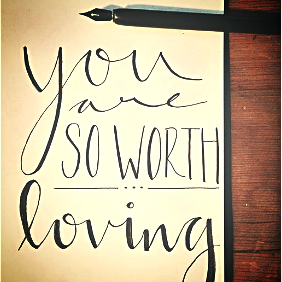 you
are
SO WORTH
loving